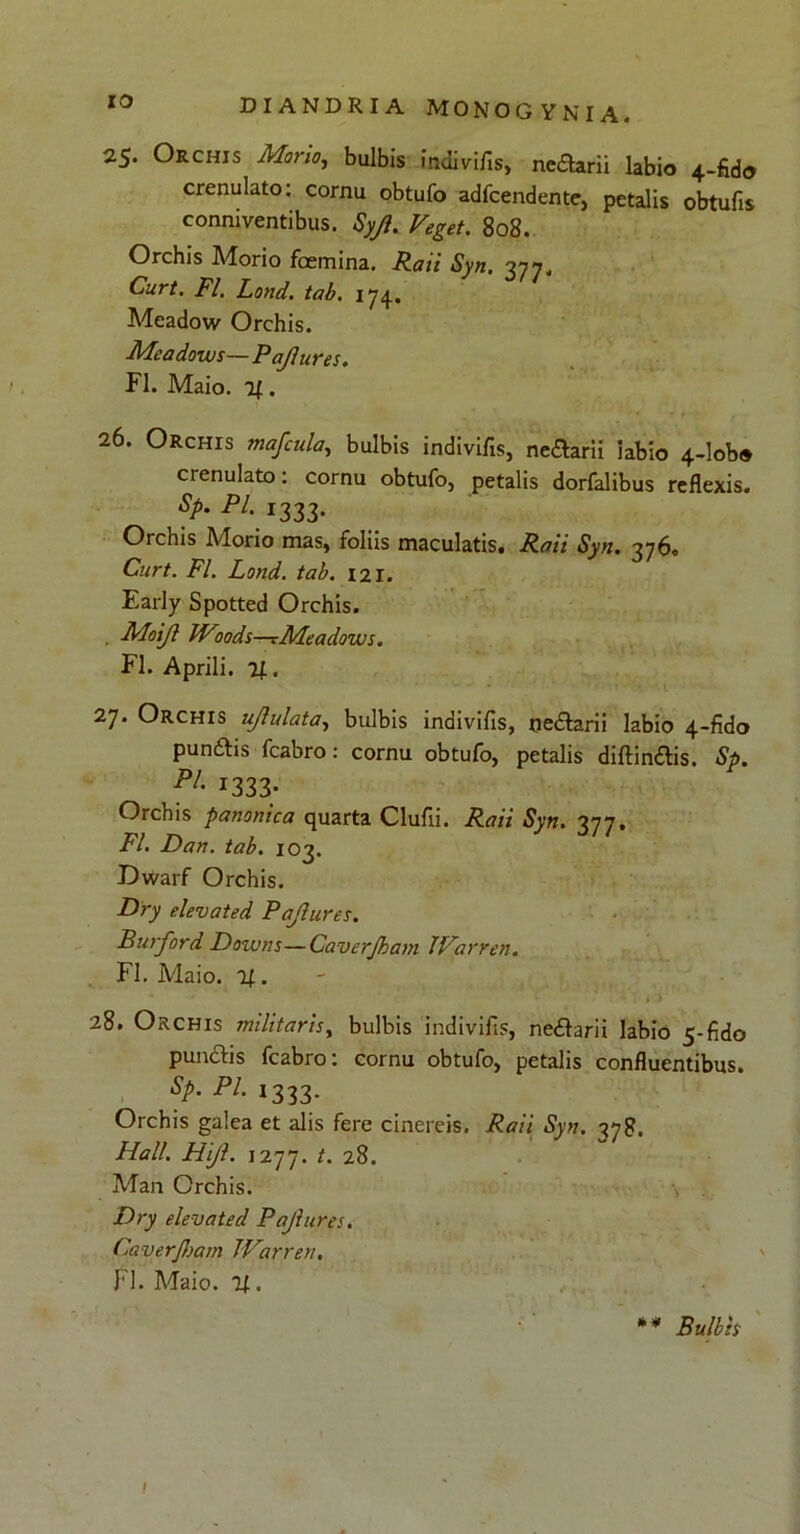 10 DIANDRIA MONOGYNIA.
25. Orchis Morio, bulbis indiviſis, nectarii labio 4-fido
crenulato: cornu obtuſo adſcendente, petalis obtuſis
conniventibus. Syſt. Veget. 808.
Orchis Morio fœmina. Raii Syn. 377.
Curt. Fl. Lond. tab. 174.
Meadow Orchis.
Meadows—Paſtures.
Fl. Maio. ♃.
26. Orchis maſcula, bulbis indiviſis, nectarii labio 4-lobo
crenulato: cornu obtuſo, petalis dorſalibus reflexis.
Sp. Pl. 1333.
Orchis Morio mas, foliis maculatis. Raii Syn. 376.
Curt. Fl. Lond. tab. 121.
Early Spotted Orchis.
Moiſt Woods—Meadows.
Fl. Aprili. ♃.
27. Orchis uſtulata, bulbis indiviſis, nectarii labio 4-fido
punctis ſcabro: cornu obtuſo, petalis diſtinctis. Sp.
Pl. 1333.
Orchis panonica quarta Cluſii. Raii Syn. 377.
Fl. Dan. tab. 103.
Dwarf Orchis.
Dry elevated Paſtures.
Burford Downs—Caverſham Warren.
Fl. Maio. ♃.
28. Orchis militaris, bulbis indiviſis, nectarii labio 5-fido
punctis ſcabro: cornu obtuſo, petalis confluentibus.
Sp. Pl. 1333.
Orchis galea et alis fere cinereis. Raii Syn. 378.
Hall. Hiſt. 1277. t. 28.
Man Orchis.
Dry elevated Paſtures.
Caverſham Warren.
Fl. Maio. ♃.
** Bulbis